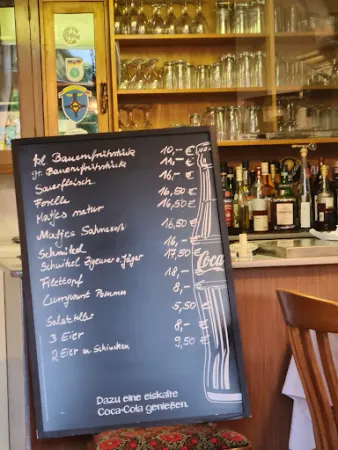 kl. Bauernfrühstück 10,-€
gr. Bauernfrühstück 11,-€
Sauerfleisch 16,-€
Forelle 16,50€
Matjes natur 16,50€
Matjes Sahnesoß 16,50€
Schnitzel 16,-€
Schnitzel Zigeuner o. Jäger 17,50€
Filettopf 18,-€
Currywurst Pommes 8,-€
Salatteller 5,50€
3 Eier 8,-€
2 Eier m Schinken 9,50€
Coca
Dazu eine eiskalte
Coca-Cola genießen.